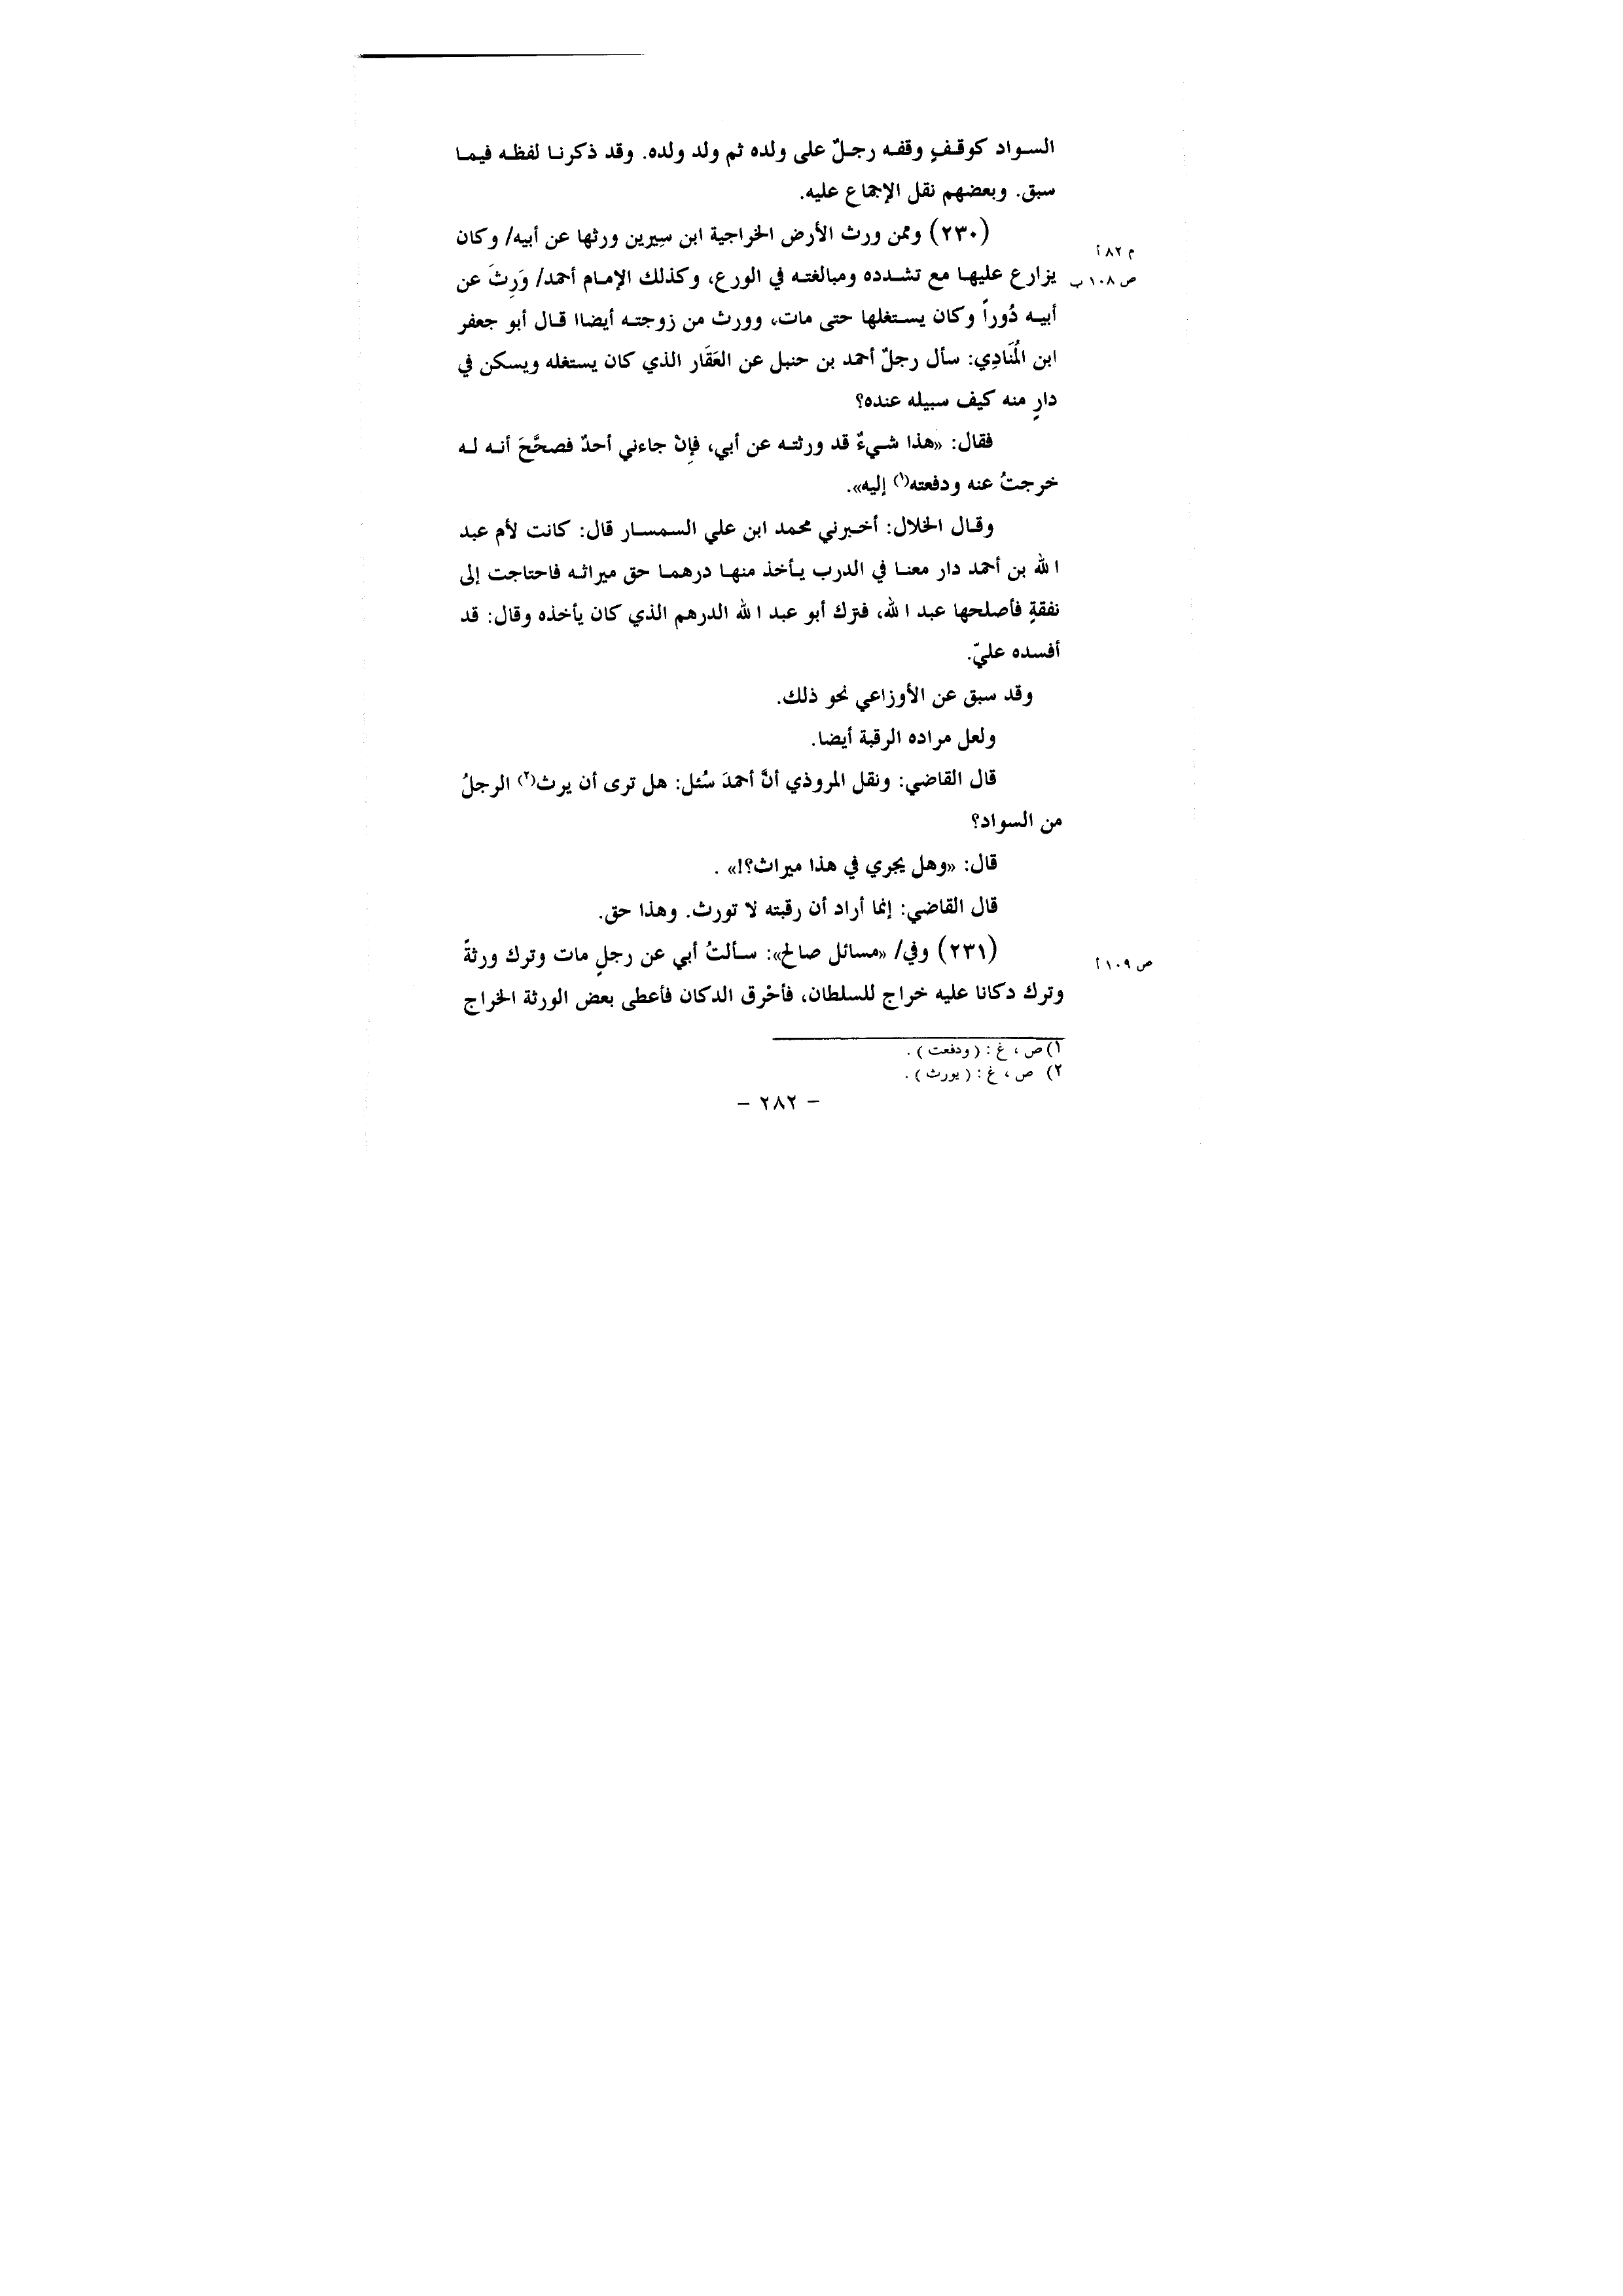 السواد كوقفٍ وقفه رجلٌ على ولده ثم ولد ولده. وقد ذكرنا لفظه فيما
سبق. وبعضهم نقل الإجماع عليه.
(٢٣٠) وممن ورث الأرض الخراجية ابن سِيرين ورثها عن أبيه/ وكان
م ٨٢ أ
يزارع عليها مع تشدده ومبالغته في الورع، وكذلك الإمام أحمد/ وَرِثَ عن
ص ١٠٨ ب
أبيه دُوراً وكان يستغلها حتى مات، وورث من زوجته أيضاا قال أبو جعفر
ابن المُنَادِي: سأل رجلٌ أحمد بن حنبل عن العَقَار الذي كان يستغله ويسكن في
دارٍ منه كيف سبيله عنده؟
فقال: «هذا شيءٌ قد ورثته عن أبي، فإِنْ جاءني أحدٌ فصحَّحَ أنه له
خرجتُ عنه ودفعته(١) إليه».
وقال الخلال: أخبرني محمد ابن علي السمسار قال: كانت لأم عبد
الله بن أحمد دار معنا في الدرب يأخذ منها درهما حق ميراثه فاحتاجت إلى
نفقةٍ فأصلحها عبد الله، فترك أبو عبد الله الدرهم الذي كان يأخذه وقال: قد
أفسده عليّ.
وقد سبق عن الأوزاعي نحو ذلك.
ولعل مراده الرقبة أيضا.
قال القاضي: ونقل المروذي أنَّ أحمدَ سُئل: هل ترى أن يرث(٢) الرجلُ
من السواد؟
قال: «وهل يجري في هذا ميراث؟!» .
قال القاضي: إنما أراد أن رقبته لا تورث. وهذا حق.
(٢٣١) وفي/ «مسائل صالح»: سألتُ أبي عن رجلٍ مات وترك ورثةً
ص ١٠٩ أ
وترك دكانا عليه خراج للسلطان، فأحْرق الدكان فأعطى بعض الورثة الخراج
١) ص ، غ : ( ودفعت ) .
٢) ص ، غ : ( يورث ) .
– ٢٨٢ –